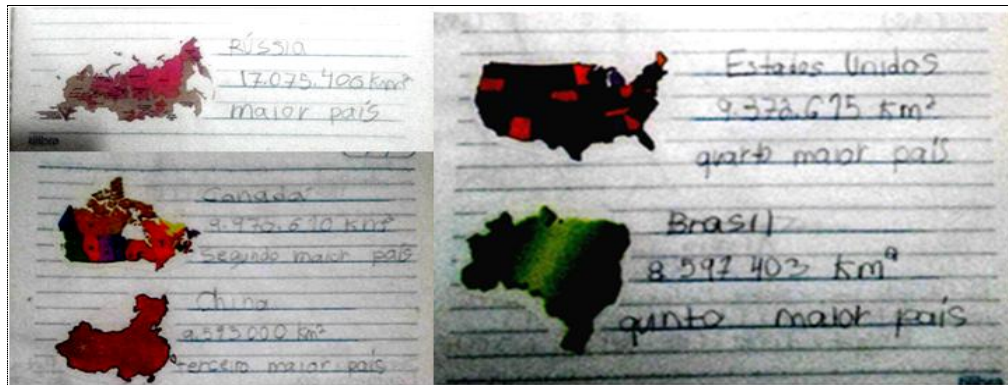 RÚSSIA
17.075.400 Km²
maior país
Canadá
9.970.610 Km²
Segundo maior país
China
9.595.000 Km²
terceiro maior país
Estados Unidos
9.372.615 Km²
quarto maior país
Brasil
8.597.403 Km²
qunto maior país